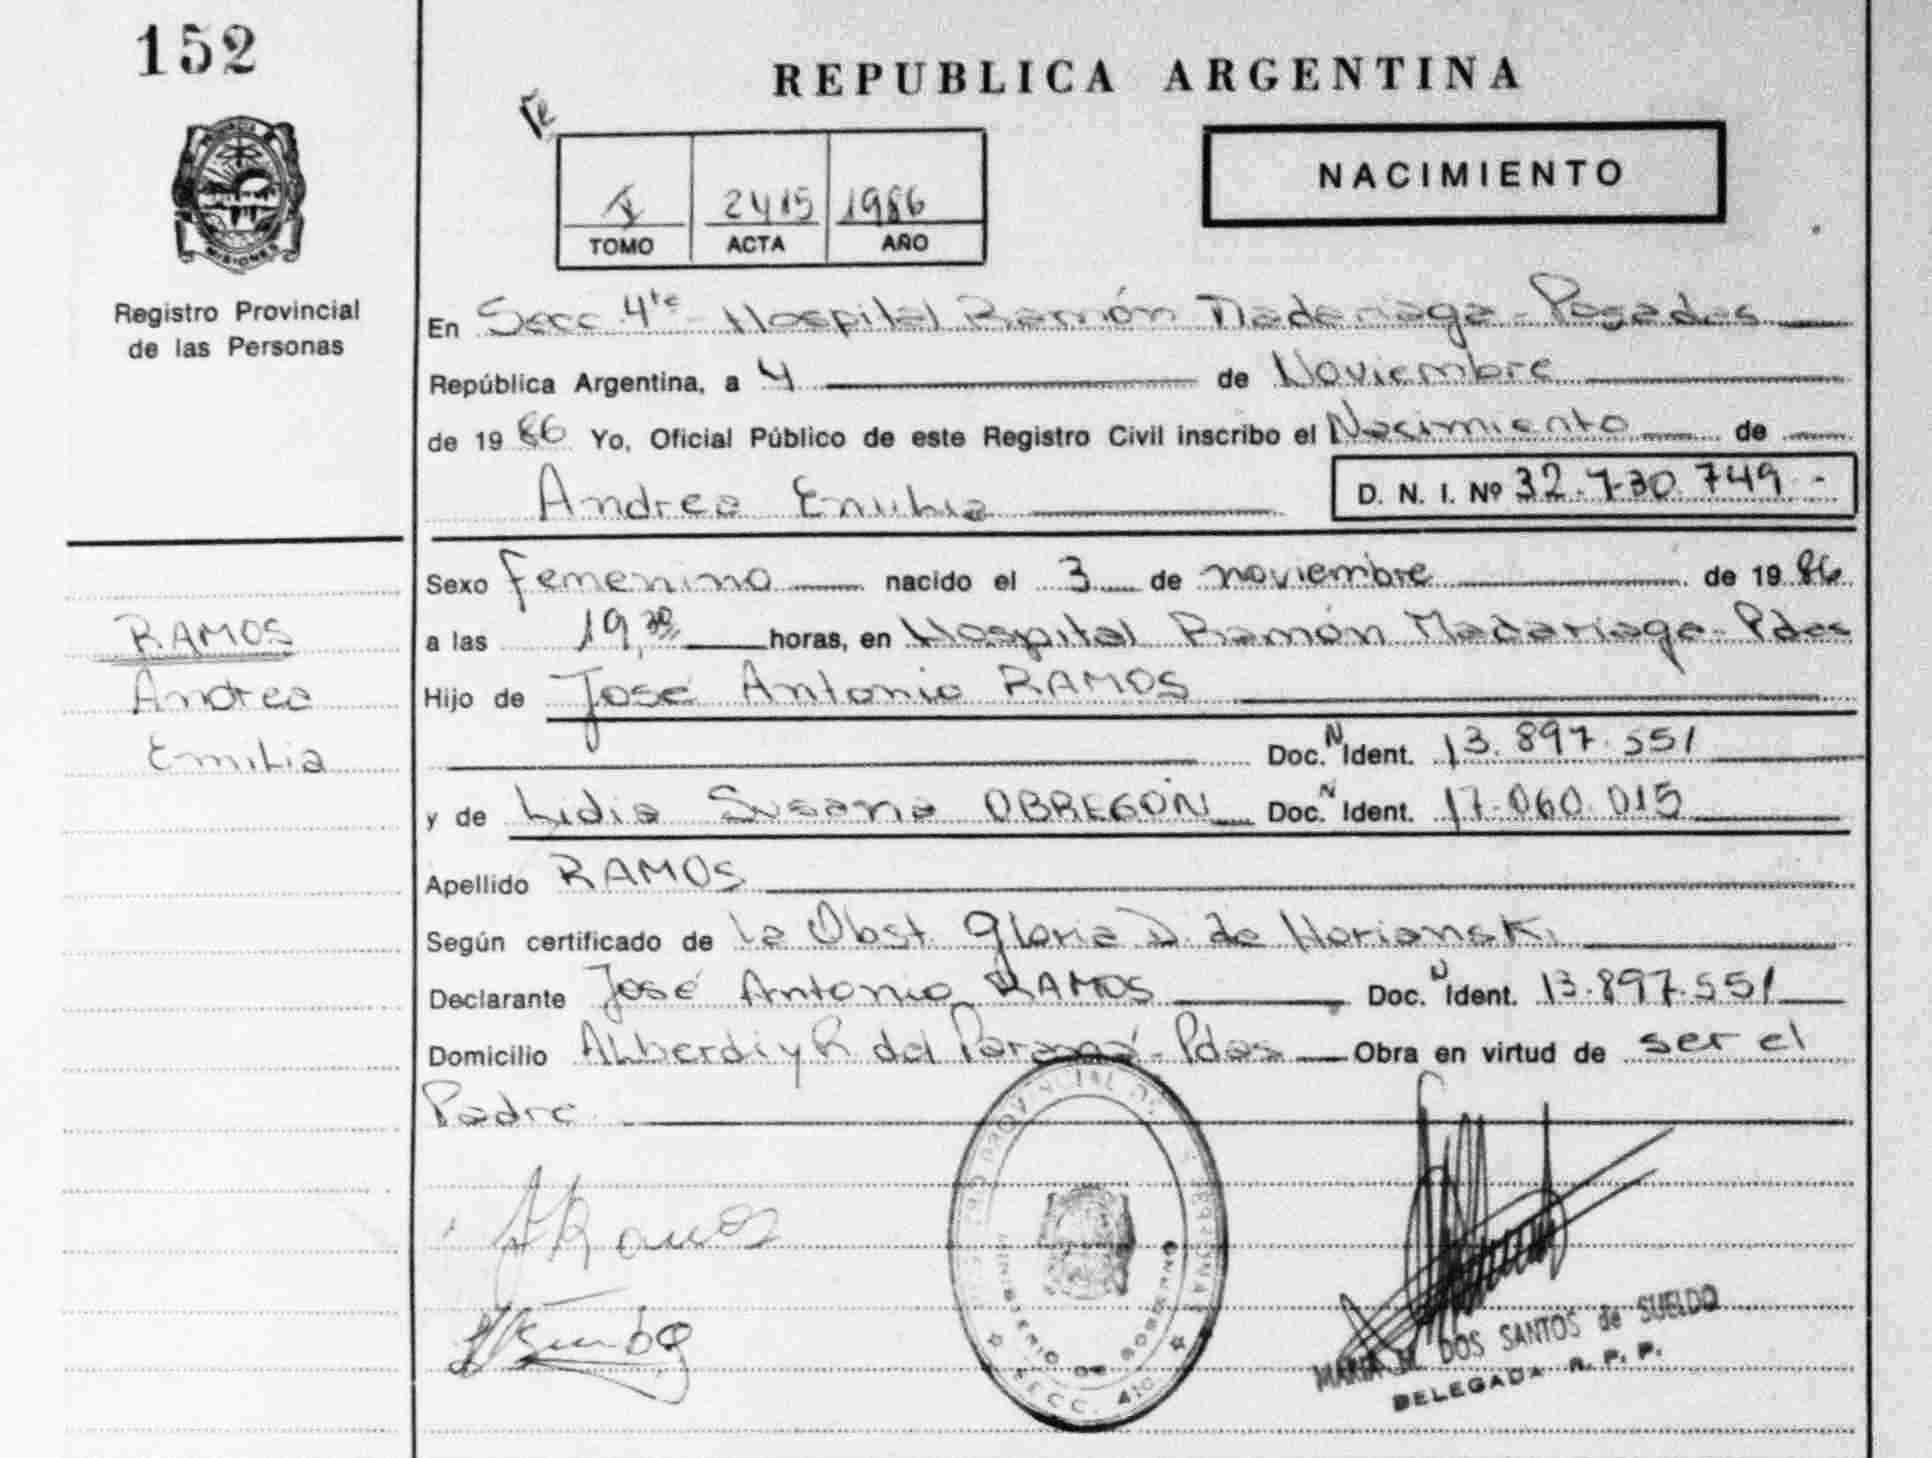 152
REPUBLICA ARGENTINA
NACIMIENTO
2415 1986
TOMO ACTA AÑO
MISIONES
Registro Provincial
de las Personas
En Secc 4ta - Hospital Ramón Madariaga - Posadas
República Argentina, a 4 de Noviembre
de 19 86 Yo, Oficial Público de este Registro Civil inscribo el Nacimiento de
Andrea Emilia D. N. I. Nº 32.730.749 -
Sexo femenino nacido el 3 de noviembre de 19 86
a las 19,30 horas, en Hospital Ramón Madariaga - Pdas
Hijo de José Antonio RAMOS
Doc. N Ident. 13.897.551
y de Lidia Susana OBREGÓN Doc. N Ident. 17.060.015
Apellido RAMOS
Según certificado de la Obst. Gloria D. de Horianski
Declarante José Antonio RAMOS Doc. N Ident. 13.897.551
Domicilio ALberdi y R. del Paraná - Pdas Obra en virtud de ser el
Padre
RAMOS
Andrea
Emilia
Ramos
PROVINCIAL DE
MINISTERIO DE GOBIERNO
SECC. 4
MARIA M. DOS SANTOS de SUELDO
DELEGADA R. P. P.